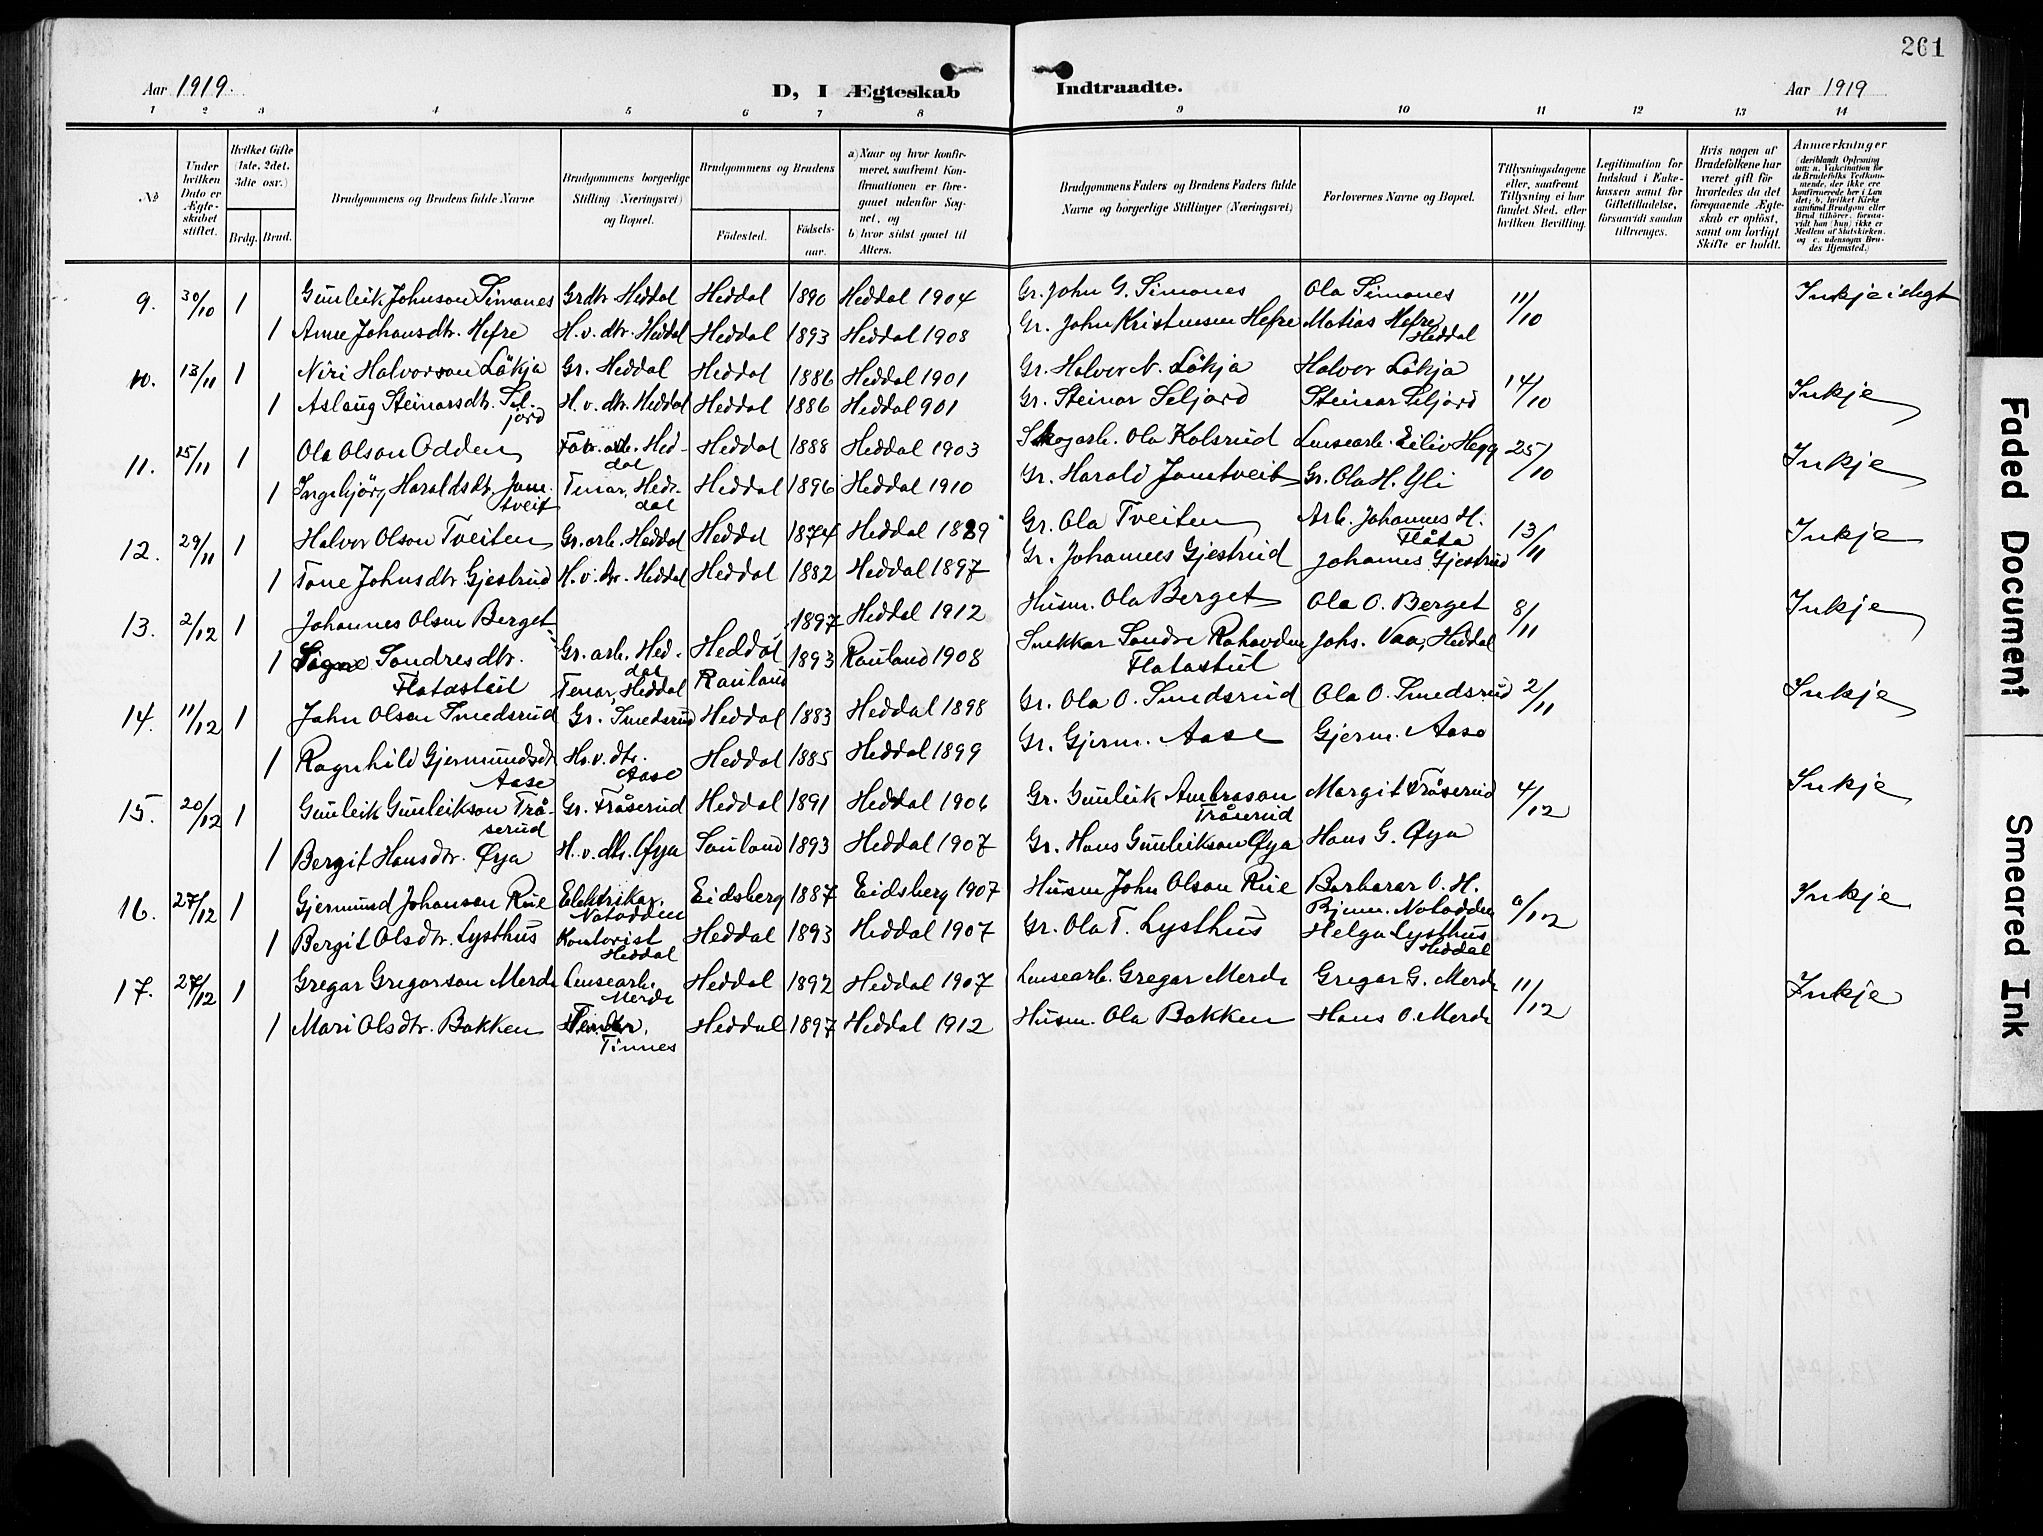 261
Aar 1919.
D, I Ægteskab Indtraadte.
Aar 1919
1 2 3 4 5 6 7 8 9 10 11 12 13 14
No
Under hvilken Dato er Ægteskabet stiftet.
Hvilket Gifte (1ste, 2det, 3die osv.)
Brdg. Brud.
Brudgommens og Brudens fulde Navne
Brudgommens borgerlige Stilling (Næringsvei) og Bopæl.
Brudgommens og Brudens
Födested. Födselsaar.
a) Naar og hvor konfirmeret, saafremt Konfirmationen er foregaaet udenfor Sognet, og
b) hvor sidst gaaet til Alters.
Brudgommens Faders og Brudens Faders fulde Navne og borgerlige Stillinger (Næringsvei)
Forlovernes Navne og Bopæl.
Tillysningsdagene eller, saafremt Tillysning ei har fundet Sted, efter hvilken Bevilling.
Legitimation for Indskud i Enkekassen samt for Giftetilladelse, forsaavidt saadan tiltrænges.
Hvis nogen af Brudefolkene har været gift för, hvorledes da det foregaaende Ægteskab er oplöst, samt om lovligt Skifte er holdt.
Anmærkninger
9. 30/10 1 Gunleik Johnson Simones Grdtr. Heddal Heddal 1890 Heddal 1904 Gr. John G. Simones Ola Simones 11/10 Inkje i slegt
1 Anne Johansdtr. Hefre H.v. dtr. Heddal Heddal 1893 Heddal 1908 Gr. John Kristensen Hefre Matias Hefre Heddal
10. 13/11 1 Niri Halvorson Lökja Gr. Heddal Heddal 1886 Heddal 1901 Gr. Halvor N. Lökja Halvor Lökja 14/10 Inkje
1 Aslaug Steinarsdtr. Seljord H.v. dtr. Heddal Heddal 1886 Heddal 901 Gr. Steinar Seljord Steinar Seljord
11. 25/11 1 Ola Olson Odden Fabr. arb. Heddal Heddal 1888 Heddal 1903 Skogarb. Ola Kolsrud Lensearb. Eiliv Hegg 25/10 Inkje
1 Ingebjörg Haraldsdtr. Jamtveit Tenar, Heddal Heddal 1896 Heddal 1910 Gr. Harald Jamtveit Gr. Ola H. Yli
12. 29/11 1 Halvor Olson Tveiten Gr. arb. Heddal Heddal 1874 Heddal 1889 Gr. Ola Tveiten Arb. Johannes H. Flåta 13/11 Inkje
1 Tone Johnsdtr. Gjestrud H.v. dtr. Heddal Heddal 1882 Heddal 1897 Gr. Johannes Gjestrud Johannes Gjestrud
13. 2/12 1 Johannes Olson Berget Gr. arb. Heddal Heddal 1897 Heddal 1912 Husm. Ola Berget Ola O. Berget 8/11 Inkje
1 Signe Sondresdtr. Flatastul Tenar, Heddal Rauland 1893 Rauland 1908 Snekkar Sondre Flatastul Johs. Vaa, Heddal
14. 11/12 1 John Olson Smedsrud Gr. Smedsrud Heddal 1883 Heddal 1898 Gr. Ola O. Smedsrud Ola O. Smedsrud 2/11 Inkje
1 Ragnhild Gjermundsdtr. Aase H.v. dtr. Aase Heddal 1885 Heddal 1899 Gr. Gjerm. Aase Gjerm. Aase
15. 20/12 1 Gunleik Gunleikson Tråserud Gr. Tråserud Heddal 1891 Heddal 1906 Gr. Gunleik Ambroson Tråserud Margit Tråserud 4/12 Inkje
1 Bergit Hansdtr. Øya H.v. dtr. Øya Sauland 1893 Heddal 1907 Gr. Hans Gunleikson Øya Hans G. Øya
16. 27/12 1 Gjermund Johanson Rue Elektrikar, Notodden Eidsberg 1887 Eidsberg 1907 Husm. John Olson Rue Barberar O. H. Notodden /12 Inkje
1 Bergit Olsdtr. Lysthus Kontorist Heddal Heddal 1893 Heddal 1907 Gr. Ola T. Lysthus Helga Lysthus Heddal
17. 27/12 1 Gregar Gregarson Merde Lensearb. Merde Heddal 1892 Heddal 1907 Lensearb. Gregar Merde Gregar G. Merde 11/12 Inkje
1 Mari Olsdtr. Bakken Tinnes Heddal 1897 Heddal 1912 Husm. Ola Bakken Hans O. Merde
Faded Document
Smeared Ink